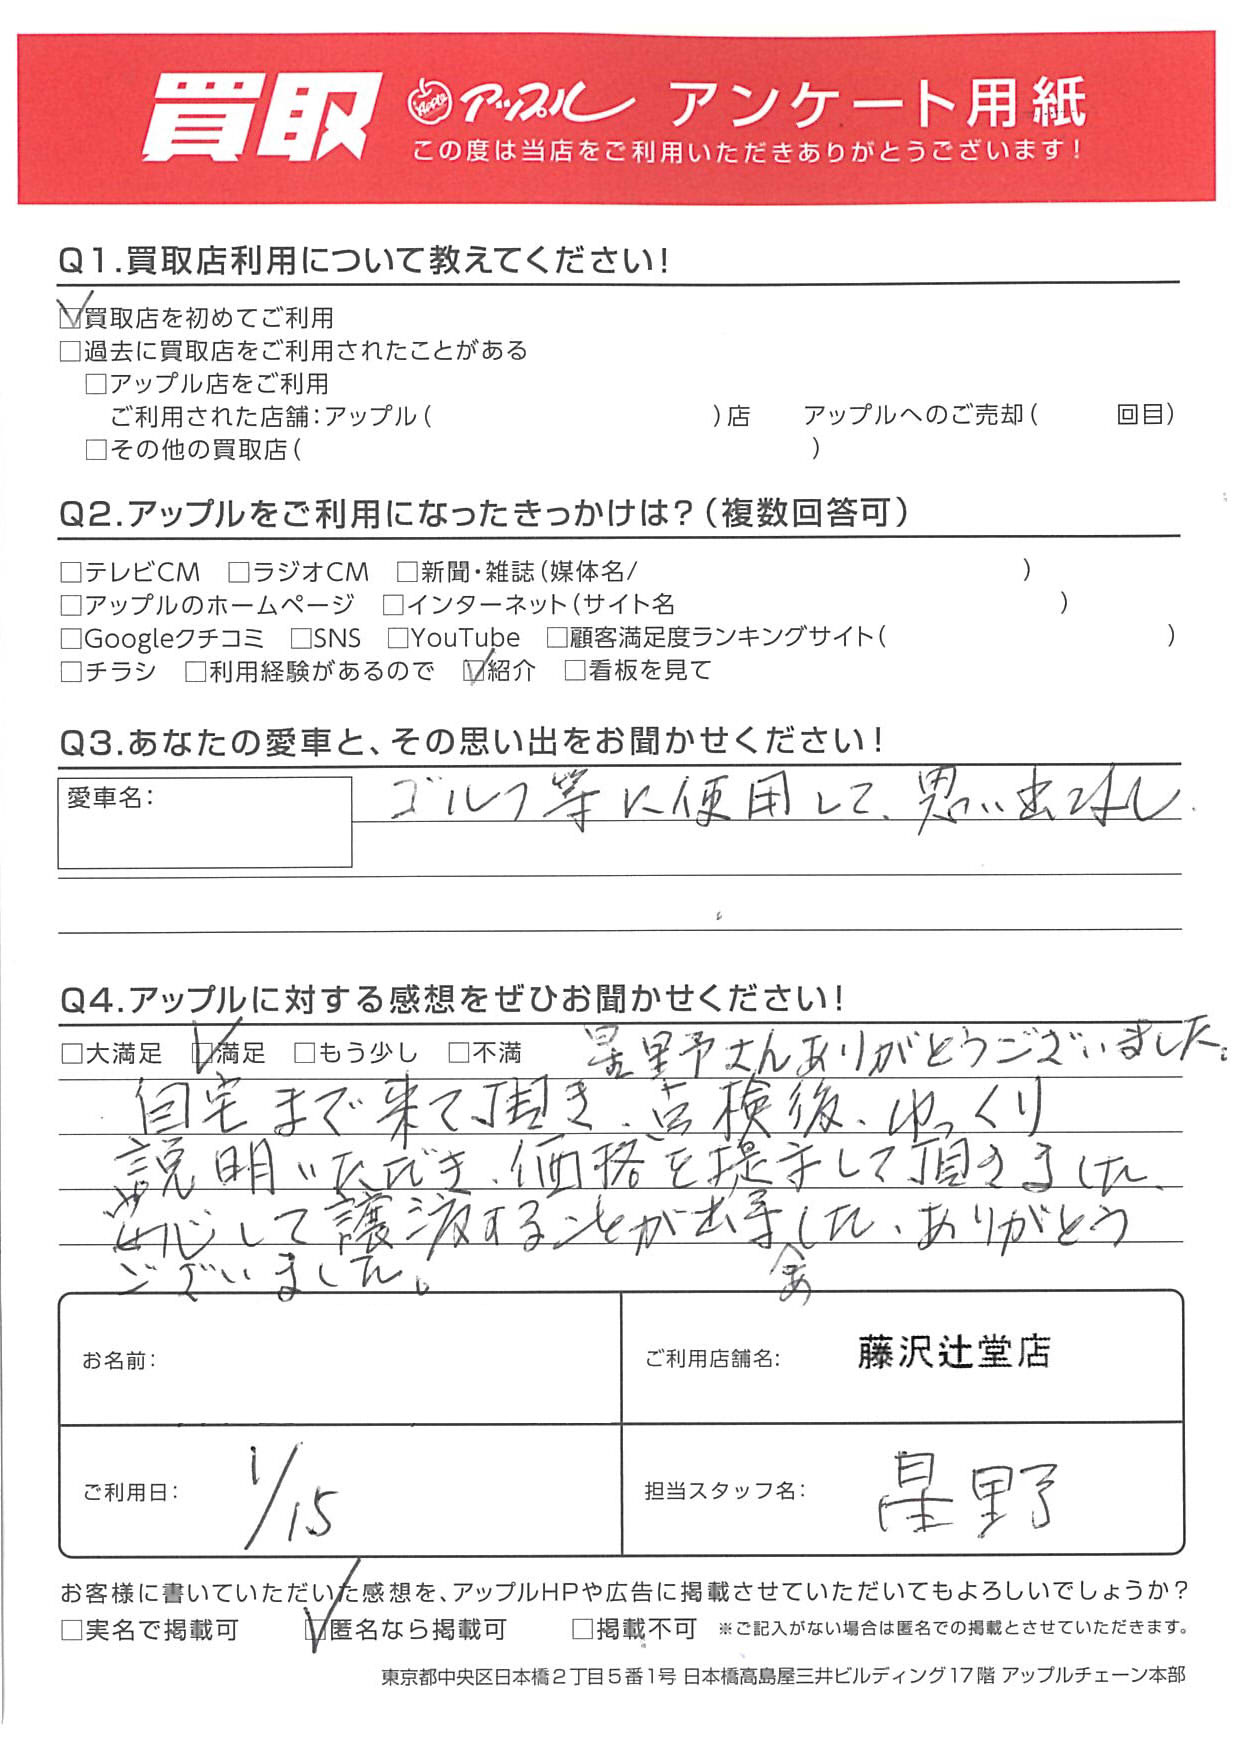 買取 Apple アップル アンケート用紙
この度は当店をご利用いただきありがとうございます!
Q1.買取店利用について教えてください!
☑買取店を初めてご利用
□過去に買取店をご利用されたことがある
□アップル店をご利用
ご利用された店舗:アップル( )店 アップルへのご売却( 回目)
□その他の買取店( )
Q2.アップルをご利用になったきっかけは?(複数回答可)
□テレビCM □ラジオCM □新聞・雑誌(媒体名/ )
□アップルのホームページ □インターネット(サイト名 )
□Googleクチコミ □SNS □YouTube □顧客満足度ランキングサイト( )
□チラシ □利用経験があるので ☑紹介 □看板を見て
Q3.あなたの愛車と、その思い出をお聞かせください!
愛車名: ゴルフ等に使用して、思い出はなし
Q4.アップルに対する感想をぜひお聞かせください!
□大満足 ☑満足 □もう少し □不満 星野さんありがとうございました。
自宅まで来て頂き、点検後、ゆっくり
説明いただき、価格を提示して頂きました、
安心して譲渡することが出来ました、ありがとう
ございました。
お名前: ご利用店舗名: 藤沢辻堂店
ご利用日: 1/15 担当スタッフ名: 星野
お客様に書いていただいた感想を、アップルHPや広告に掲載させていただいてもよろしいでしょうか?
□実名で掲載可 ☑匿名なら掲載可 □掲載不可 ※ご記入がない場合は匿名での掲載とさせていただきます。
東京都中央区日本橋2丁目5番1号 日本橋高島屋三井ビルディング17階 アップルチェーン本部